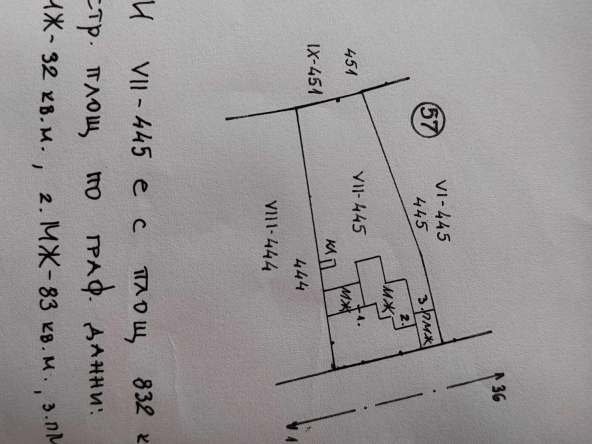 57
451
IX-451
VI-445
445
VII-445
444
VIII-444
КЛ
МЖ
1.
МЖ
2.
3. ПМЖ
И VII-445 е с площ 832 к
стр. площ по граф. данни:
МЖ-92 кв.м., 2. МЖ-83 кв.м., 3.пМ